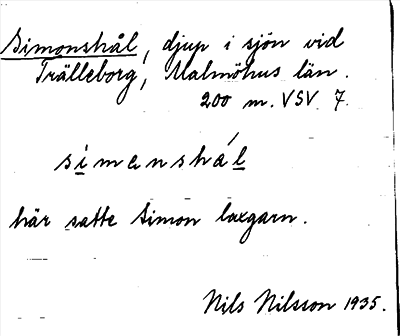 Simonshål, djup i sjön vid
Trälleborg, Malmöhus län.
200 m. VSV 7.
simɐnshål
här satte Simon laxgarn.
Nils Nilsson 1935.